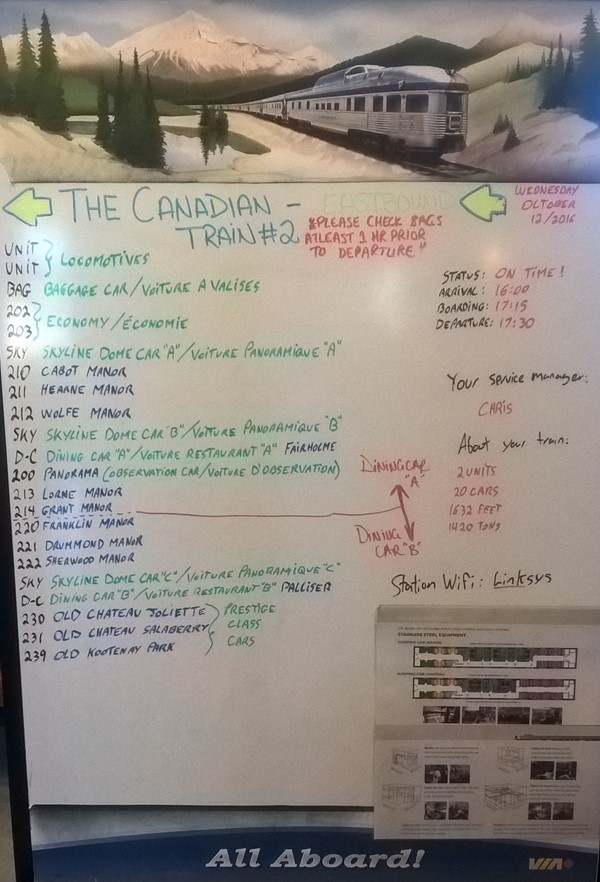 THE CANADIAN - EASTBOUND
TRAIN #2
WEDNESDAY
OCTOBER
12/2016
*PLEASE CHECK BAGS
ATLEAST 1 HR PRIOR
TO DEPARTURE"
UNIT
UNIT
LOCOMOTIVES
BAG BAGGAGE CAR/VOITURE A VALISES
202
203
ECONOMY/ÉCONOMIE
SKY SKYLINE DOME CAR "A"/VOITURE PANORAMIQUE "A"
210 CABOT MANOR
211 HEARNE MANOR
212 WOLFE MANOR
SKY SKYLINE DOME CAR "B"/VOITURE PANORAMIQUE "B"
D-C DINING CAR "A"/VOITURE RESTAURANT "A" FAIRHOLME
200 PANORAMA (OBSERVATION CAR/VOITURE D'OBSERVATION)
213 LORNE MANOR
214 GRANT MANOR
220 FRANKLIN MANOR
221 DRUMMOND MANOR
222 SHERWOOD MANOR
SKY SKYLINE DOME CAR "C"/VOITURE PANORAMIQUE "C"
D-C DINING CAR "B"/VOITURE RESTAURANT "B" PALLISER
230 OLD CHATEAU JOLIETTE
231 OLD CHATEAU SALABERRY
239 OLD KOOTENAY PARK
PRESTIGE
CLASS
CARS
DINING CAR
"A"
DINING
CAR "B"
STATUS: ON TIME!
ARRIVAL: 16:00
BOARDING: 17:15
DEPARTURE: 17:30
Your service manager:
CHRIS
About your train:
2 UNITS
20 CARS
1632 FEET
1420 TONS
Station Wifi: Linksys
STAINLESS STEEL EQUIPMENT
All Aboard!
VIA